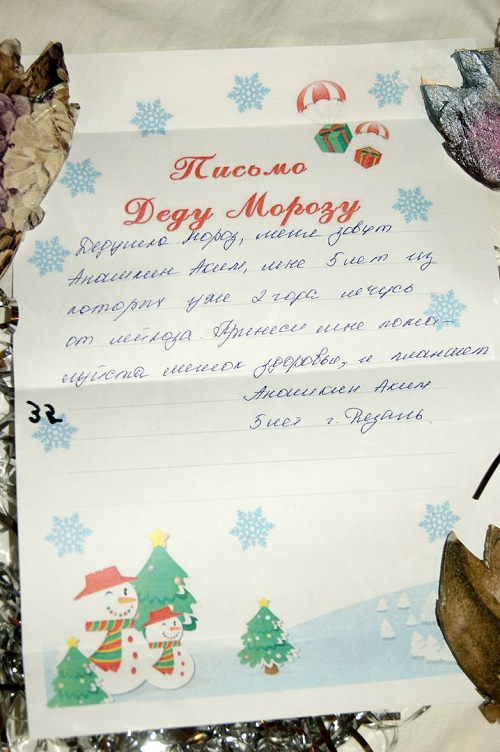 Письмо
Деду Морозу
Дедушка Мороз, меня зовут
Аким, мне 5 лет из
которых уже 2 года лечусь
от лейкоза. Принеси мне пожа-
луйста мешок здоровья, и планшет
Аким
5 лет г. Рязань.
32